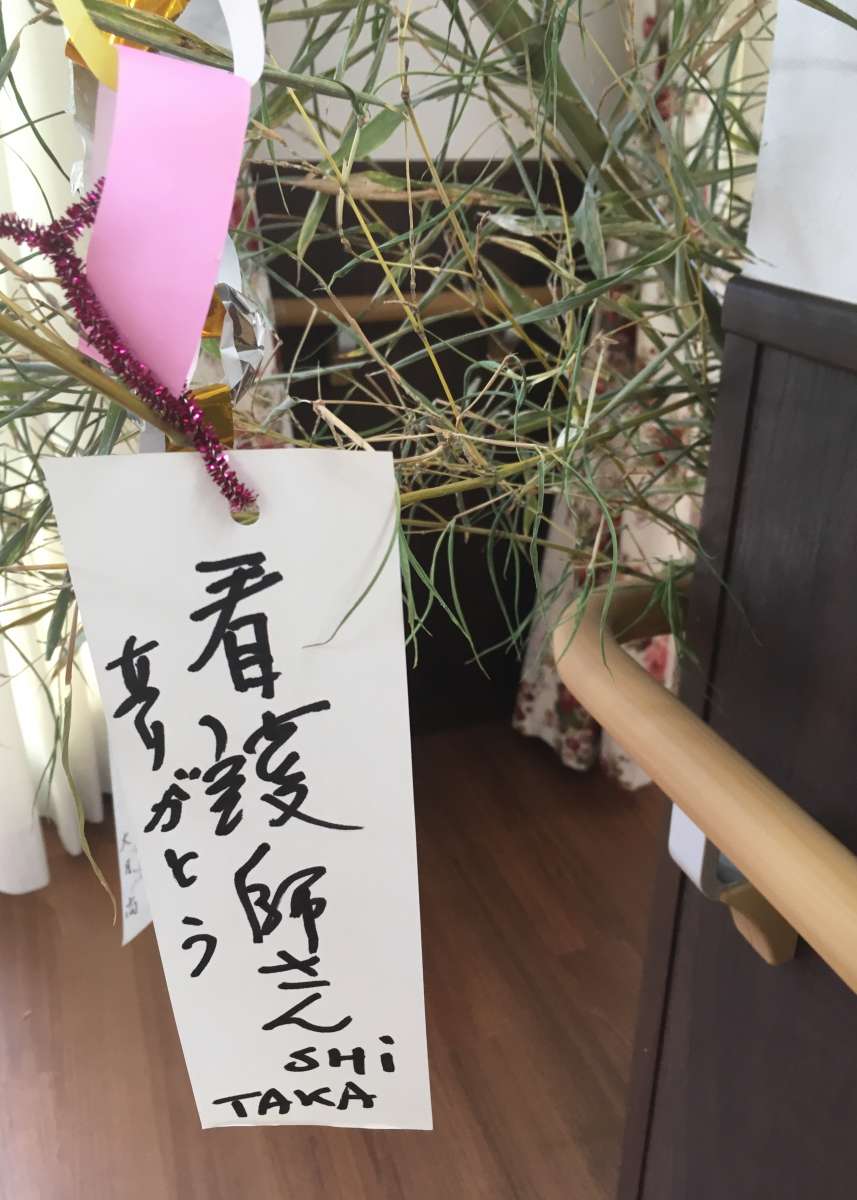 看護師さん
ありがとう
SHi
TAKA